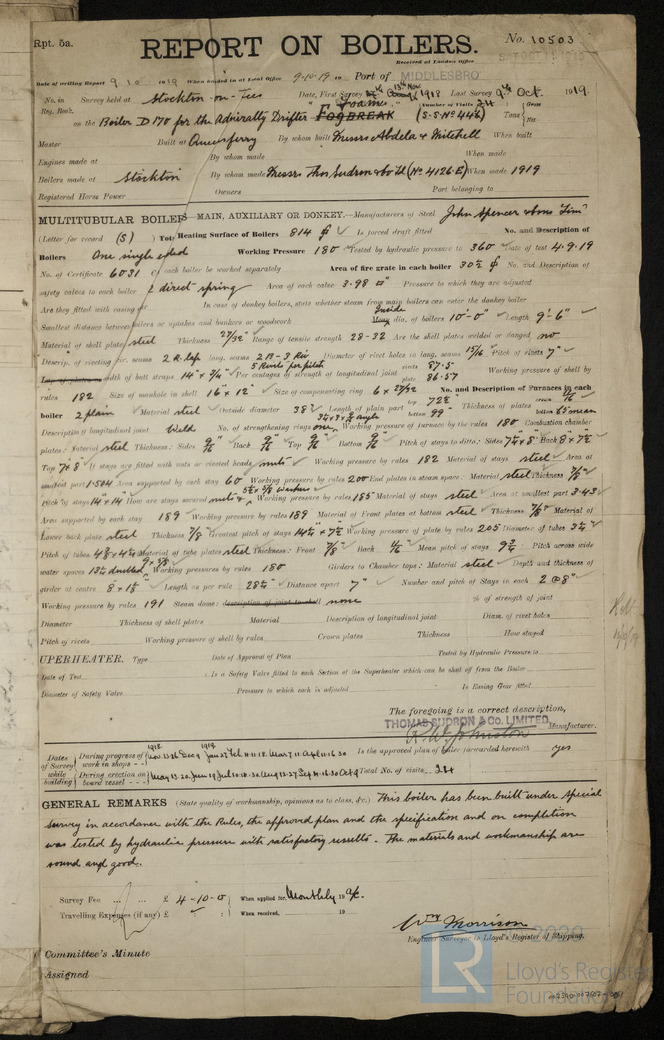 Rpt. 5a.
No. 10503
REPORT ON BOILERS.
Received at London Office
Date of writing Report 9.10.1919 When handed in at Local Office 9.10.19 Port of MIDDLESBRO
No. in Survey held at Stockton-on-Tees Date, First Survey 13th Nov 1918 Last Survey 9th Oct. 1919.
Reg. Book. "Foamer" Number of Visits 34 Gross
on the Boiler D170 for the Admiralty Drifter FOGBREAK (S.S. No 446) Tons Net
Master Built at Queensferry By whom built Messrs Abdela & Mitchell When built
Engines made at By whom made When made
Boilers made at Stockton By whom made Messrs Thos Sudron & Co Ltd (No 4126.E) When made 1919
Registered Horse Power Owners Port belonging to
MULTITUBULAR BOILERS — MAIN, AUXILIARY OR DONKEY.— Manufacturers of Steel John Spencer & Sons Lim
(Letter for record (S) Total Heating Surface of Boilers 814 Is forced draft fitted No. and Description of
Boilers One single ended Working Pressure 180 Tested by hydraulic pressure to 360 Date of test 4.9.19
No. of Certificate 6031 Can each boiler be worked separately Area of fire grate in each boiler 30½ No. and Description of
safety valves to each boiler 2 direct spring Area of each valve 3.98 Pressure to which they are adjusted
Are they fitted with easing gear In case of donkey boilers, state whether steam from main boilers can enter the donkey boiler
Smallest distance between boilers or uptakes and bunkers or woodwork Inside dia. of boilers 10'-0" Length 9'-6"
Material of shell plates steel Thickness 27/32" Range of tensile strength 28-32 Are the shell plates welded or flanged no
Descrip. of riveting: cir. seams 2 R. lap long. seams 2 B-3 Riv Diameter of rivet holes in long. seams 15/16 Pitch of rivets 7"
5 Rivets per pitch
width of butt straps 14" x 3/4" Per centages of strength of longitudinal joint rivets 87.5 plate 86.57 Working pressure of shell by
rules 182 Size of manhole in shell 16" x 12" Size of compensating ring 6 x 27/32 No. and Description of Furnaces in each
boiler 2 plain Material steel Outside diameter 38" Length of plain part top 72 bottom 99" Thickness of plates
Description of longitudinal joint Weld No. of strengthening rings one Working pressure of furnace by the rules 180 Combustion chamber
plates: Material steel Thickness: Sides 9/16" Back 9/16" Top 9/16" Bottom 9/16" Pitch of stays to ditto: Sides 7¾ x 8" Back 8 x 7½"
Top 7 x 8" If stays are fitted with nuts or riveted heads nuts Working pressure by rules 182 Material of stays steel Area at
smallest part 1.504 Area supported by each stay 60 Working pressure by rules 200 End plates in steam space: Material steel Thickness 7/8"
Pitch of stays 14" x 14" How are stays secured nuts & Working pressure by rules 185 Material of stays steel Area at smallest part 3.43
Area supported by each stay 189 Working pressure by rules 189 Material of Front plates at bottom steel Thickness 7/8" Material of
Lower back plate steel Thickness 7/8" Greatest pitch of stays 14½ x 7½ Working pressure of plate by rules 205 Diameter of tubes 3¼"
Pitch of tubes Material of tube plates steel Thickness: Front 7/8" Back 11/16" Mean pitch of stays 9¾ Pitch across wide
water spaces 13½ doubled Working pressures by rules 180 Girders to Chamber tops: Material steel Depth and thickness of
girder at centre Length as per rule 28 Distance apart 7" Number and pitch of Stays in each 2 @ 8"
Working pressure by rules 191 Steam dome: description of joint to shell none % of strength of joint
Diameter Thickness of shell plates Material Description of longitudinal joint Diam. of rivet holes
Pitch of rivets Working pressure of shell by rules Crown plates Thickness How stayed
UPERHEATER. Type Date of Approval of Plan Tested by Hydraulic Pressure to
Date of Test Is a Safety Valve fitted to each Section of the Superheater which can be shut off from the Boiler
Diameter of Safety Valve Pressure to which each is adjusted Is Easing Gear fitted
The foregoing is a correct description,
THOMAS SUDRON & CO. LIMITED. Manufacturer.
R. W. Johnston
Dates of Survey while building
During progress of work in shops - - 1918 1919 Is the approved plan of boiler forwarded herewith yes
During erection on board vessel - - - Total No. of visits 34
GENERAL REMARKS (State quality of workmanship, opinions as to class, &c.) This boiler has been built under special
survey in accordance with the Rules, the approved plan and the specification and on completion
was tested by hydraulic pressure with satisfactory results. The materials and workmanship are
sound and good.
Survey Fee ... ... £ 4-10-0 When applied for, Monthly a/c. 19
Travelling Expenses (if any) £ When received, 19
Wm Morrison
Engineer Surveyor to Lloyd's Register of Shipping.
Committee's Minute
Assigned
© 2020
LR
Lloyd's Register
Foundation